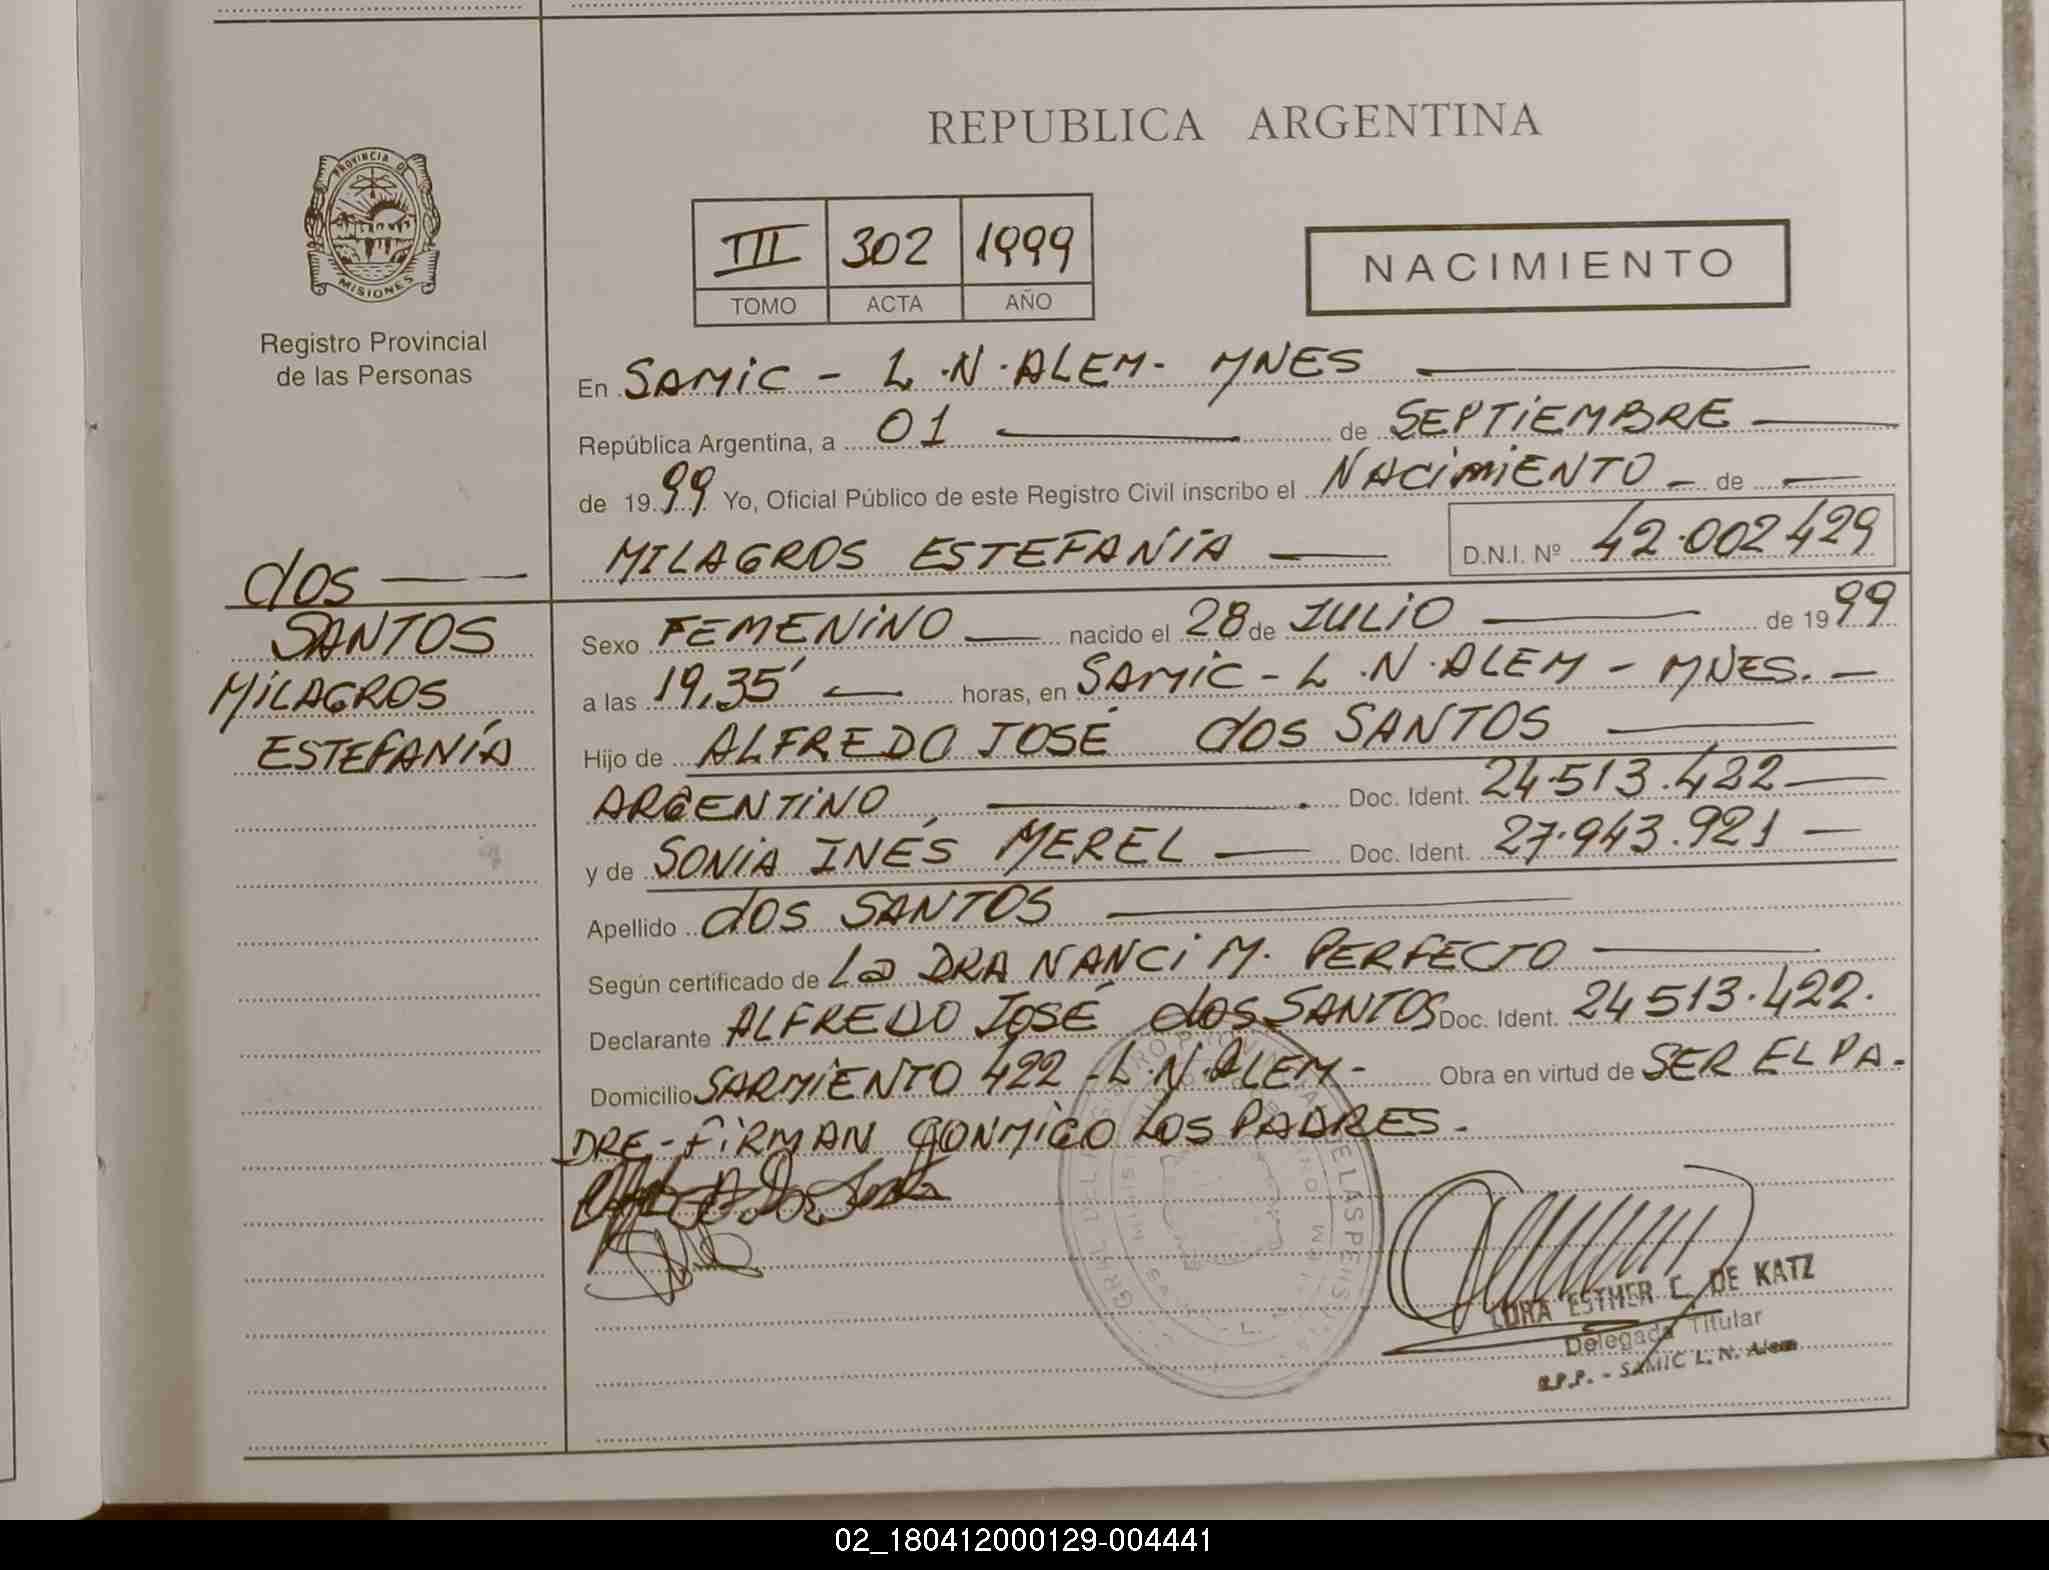 REPUBLICA ARGENTINA
PROVINCIA DE
MISIONES
Registro Provincial
de las Personas
III 302 1999
TOMO ACTA AÑO
NACIMIENTO
En SAMIC - L.N.ALEM- MNES
República Argentina, a 01 de SEPTIEMBRE
de 1999 Yo, Oficial Público de este Registro Civil inscribo el NACIMIENTO - de
MILAGROS ESTEFANÍA D.N.I. Nº 42.002429
dos
SANTOS
MILAGROS
ESTEFANÍA
Sexo FEMENINO nacido el 28 de JULIO de 1999
a las 19,35' horas, en SAMIC - L.N.ALEM - MNES.
Hijo de ALFREDO JOSÉ dos SANTOS
ARGENTINO Doc. Ident. 24.513.422
y de SONIA INÉS MEREL Doc. Ident. 27.943.921
Apellido dos SANTOS
Según certificado de La DRA NANCI M. PERFECTO
Declarante ALFREDO JOSÉ dos SANTOS Doc. Ident. 24513.422.
Domicilio SARMIENTO 422 - L.N.ALEM- Obra en virtud de SER EL PA-
DRE - FIRMAN CONMIGO LOS PADRES.
ESTHER C. DE KATZ
Delegada Titular
R.P.P. - SAMIC L. N. Alem
02_180412000129-004441